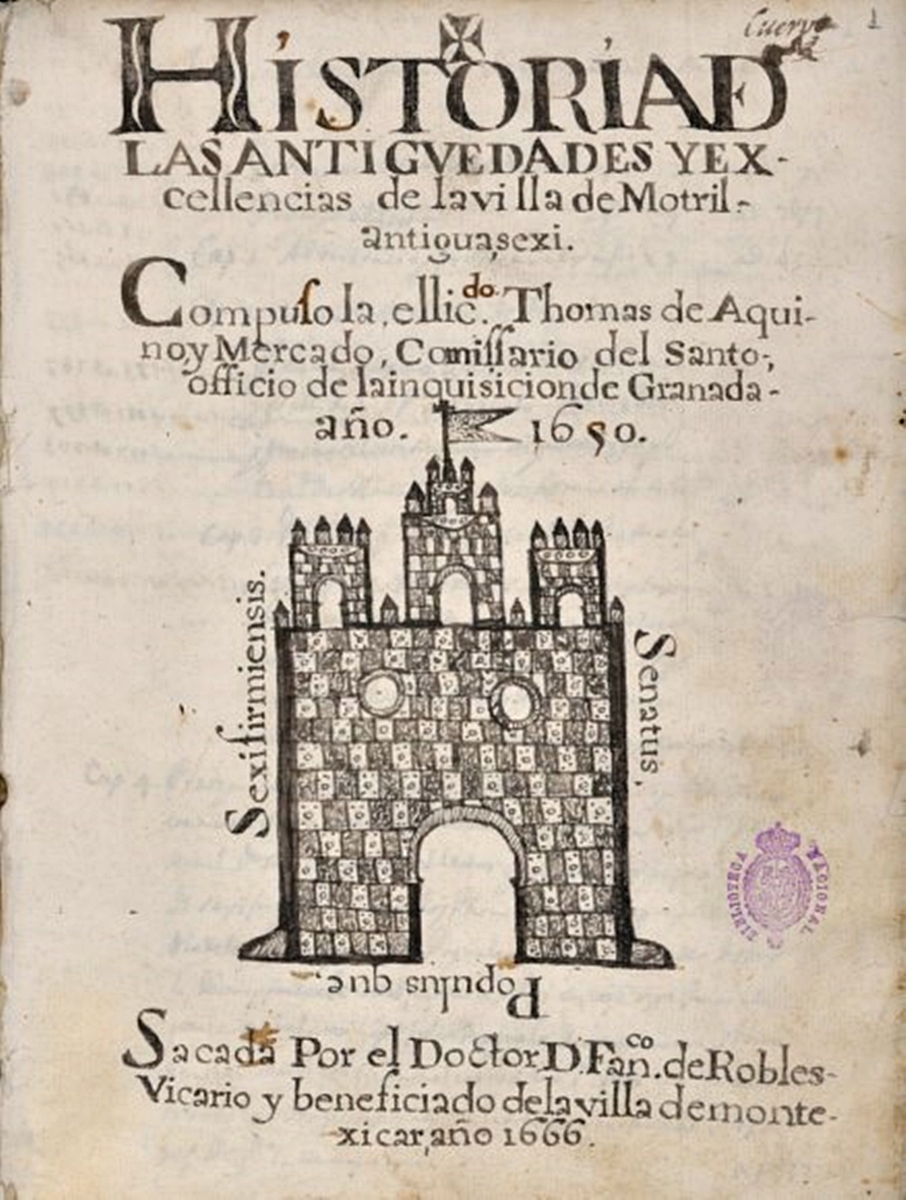 Cuervo
1
HiSTORiAD
LAS ANTIGVEDADES Y EX-
cellencias de la villa de Motril-
antigua,sexi.
Compuso la, el lic.do Thomas de Aqui-
no,y Mercado, Comissario del Santo-,
officio de la inquisicion de Granada-
año. 1650.
Senatus,
Populus que,
Sexifirmiensis.
BIBLIOTECA NACIONAL
Sacada Por el Doctor D.Fan.co de Robles-
Vicario y beneficiado de la villa de monte-
xicar,año 1666.